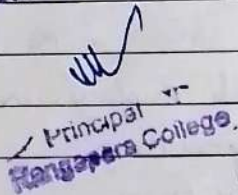 Principal
Rangapara College.